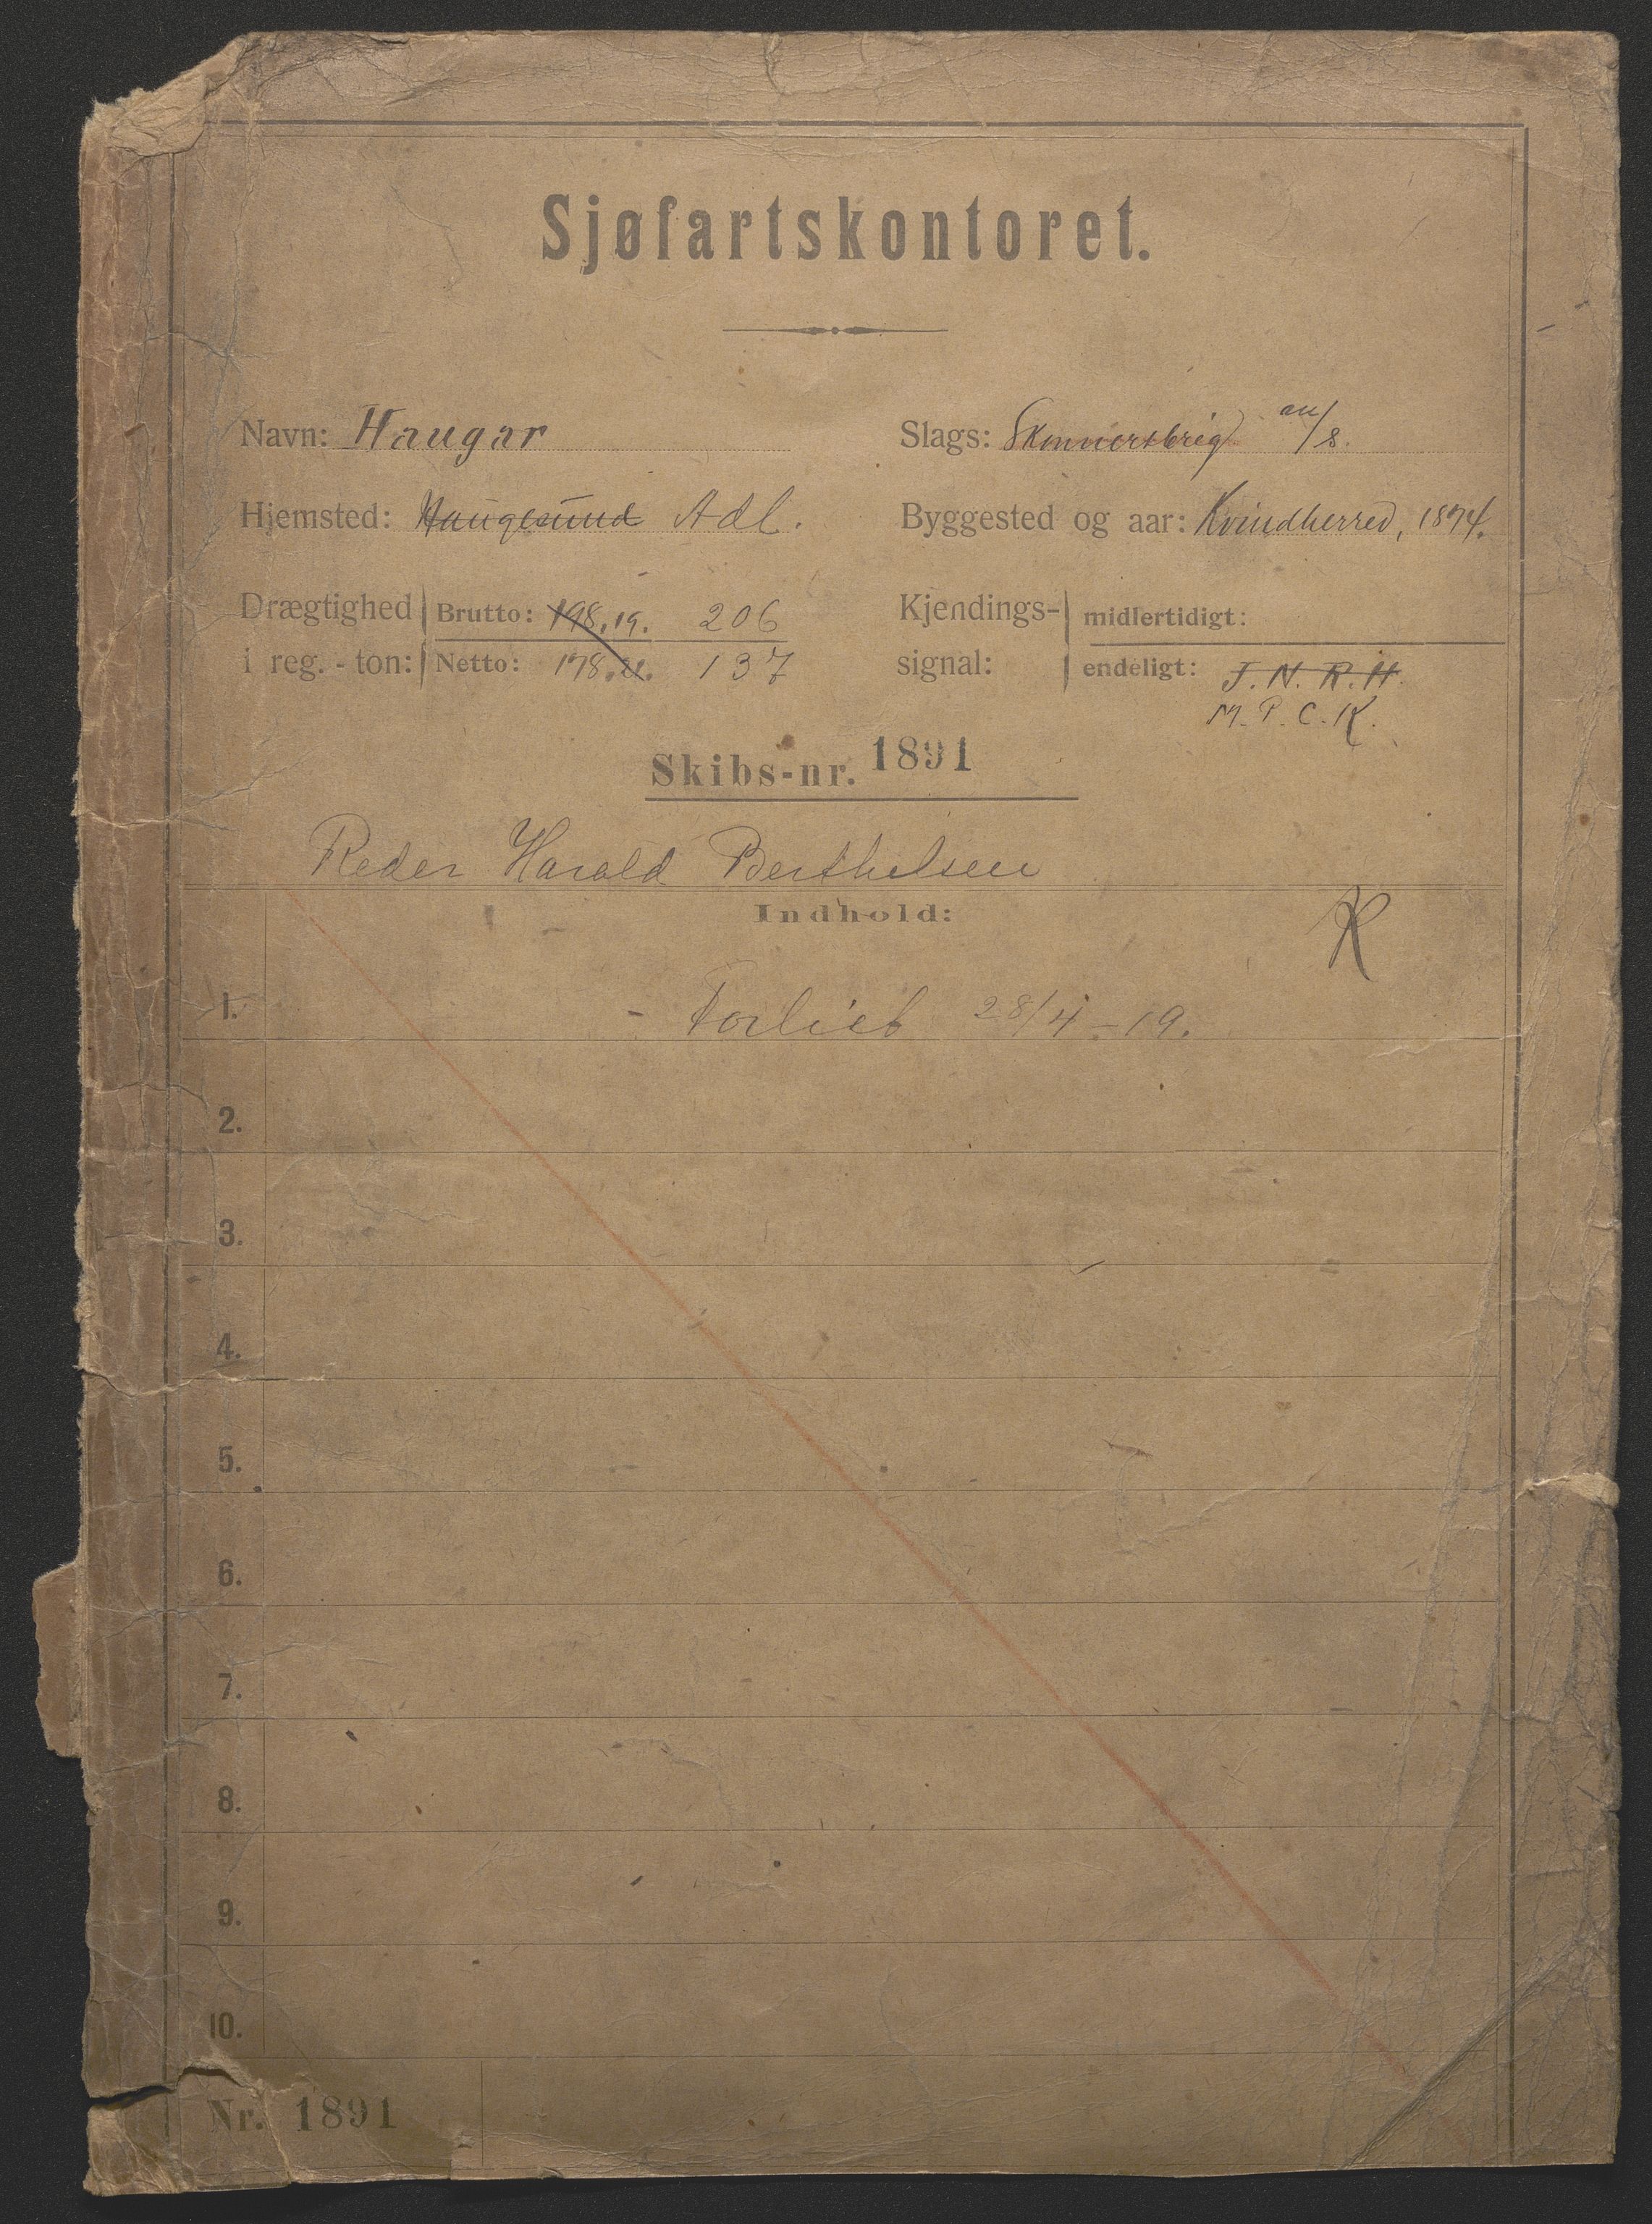 Sjøfartskontoret.
Navn: Haugar
Slags: Skonnertbrig m/s.
Hjemsted: Haugesund Adl.
Byggested og aar: Kvindherred, 1874.
Drægtighed i reg.-ton: Brutto: 198,19. 206
Netto: 178. 137
Kjendings-signal: midlertidigt:
endeligt: J. N. R. H.
M. P. C. K.
Skibs-nr. 1891
Reder Harald Berthelsen
Indhold:
K
1. - Forlist 28/4-19.
2.
3.
4.
5.
6.
7.
8.
9.
10.
Nr. 1891